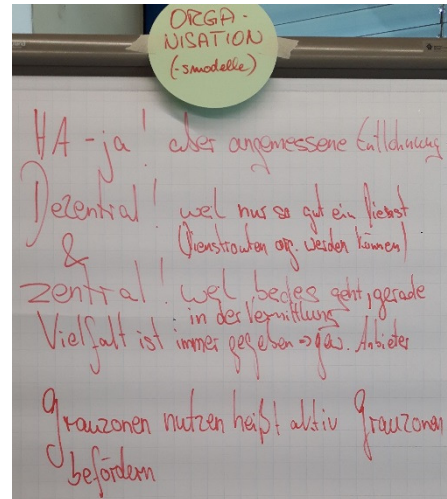 ORGA-
NISATION
(-smodelle)
HA - ja! aber angemessene Entlohnung
Dezentral! weil nur so gut ein Dienst
(Dienstrouten org. werden können)
&
zentral! weil beides geht, gerade
in der Vermittlung
Vielfalt ist immer gegeben => gew. Anbieter
Grauzonen nutzen heißt aktiv Grauzonen
befördern